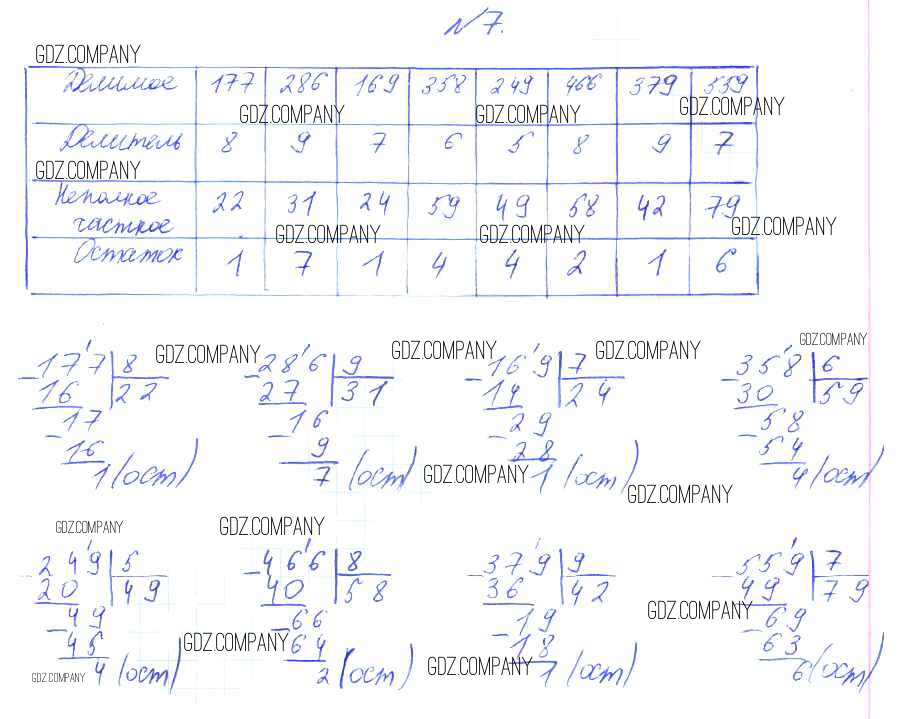 №7.
GDZ.COMPANY
Делимое 177 286 169 358 249 466 379 559
GDZ.COMPANY GDZ.COMPANY GDZ.COMPANY
Делитель 8 9 7 6 5 8 9 7
GDZ.COMPANY
Неполное частное 22 31 24 59 49 58 42 79
GDZ.COMPANY GDZ.COMPANY GDZ.COMPANY
Остаток 1 7 1 4 4 2 1 6
GDZ.COMPANY GDZ.COMPANY GDZ.COMPANY GDZ.COMPANY
-177 8 -286 9 -169 7 -358 6
16 22 27 31 14 24 30 59
-17 -16 -29 -58
16 9 28 54
1 (ост) 7 (ост) 1 (ост) 4 (ост)
GDZ.COMPANY GDZ.COMPANY
GDZ.COMPANY GDZ.COMPANY
-249 5 -466 8 -379 9 -559 7
20 49 40 58 36 42 49 79
-49 -66 -19 -69
45 64 18 63
4 (ост) 2 (ост) 1 (ост) 6 (ост)
GDZ.COMPANY GDZ.COMPANY GDZ.COMPANY GDZ.COMPANY